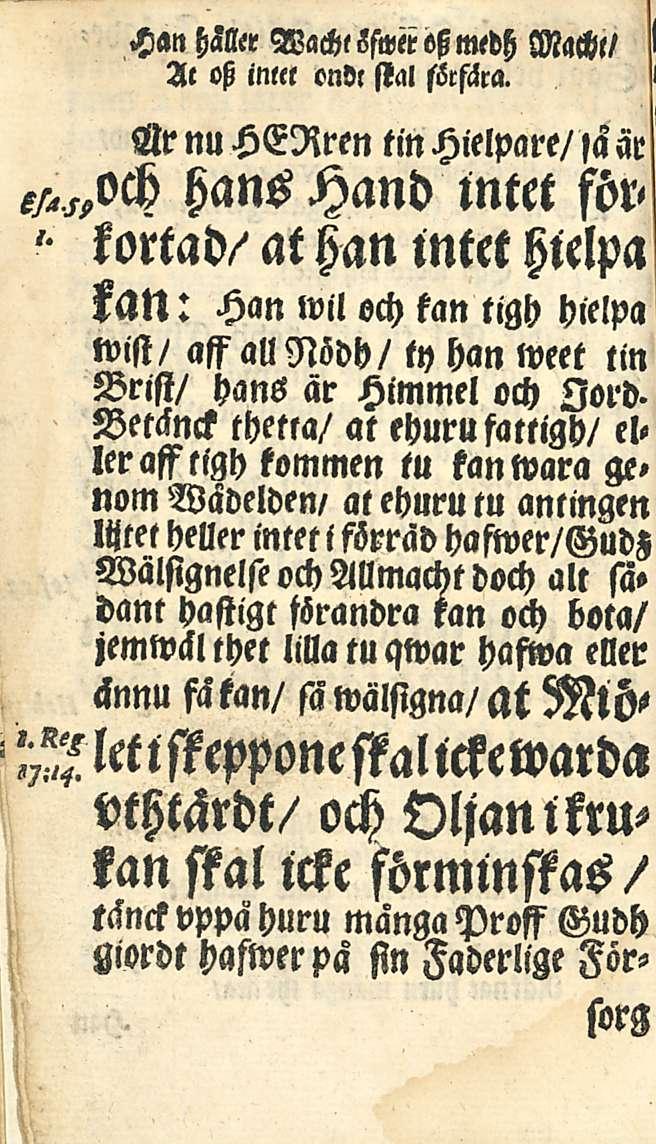 Han håller Wacht öfwer oß medh Macht/
At oß intet ondt skal förfära.
Är nu HERren tin Hielpare/ så är
Esa. 59 och hans Hand intet för-
1. kortad/ at han intet hielpa
kan: Han wil och kan tigh hielpa
wist/ aff all Nödh/ ty han weet tin
Brist/ hans är Himmel och Jord.
Betänck thetta/ at ehuru fattigh/ el-
ler aff tigh kommen tu kan wara ge-
nom Wådelden/ at ehuru tu antingen
lijtet heller intet i förråd hafwer/ Gudz
Wälsignelse och Allmacht doch alt så-
dant hastigt förandra kan och bota/
jemwäl thet lilla tu qwar hafwa eller
ännu få kan/ så wälsigna/ at Miö-
1. Reg let i skeppone skal icke warda
17:14. vthtärdt/ och Oljan i kru-
kan skal icke förminskas/
tänck vppå huru många Proff Gudh
giordt hafwer på sin Faderlige För-
sorg